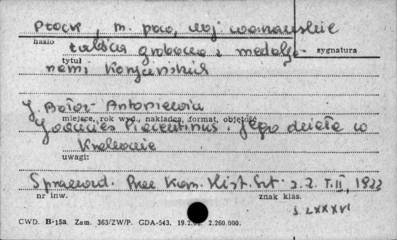 Płock, m. pow., woj. warszawskie
hasło
tablica grobowa z medaljo-
sygnatura
tytuł
nami Konjuńskich
J. Bołoz-Antoniewicz
miejsce, rok wyd., nakładca, format, objętość
Joannes Florentinus i jego dzieła w
Krakowie
uwagi:
Sprawozd. Prac Kom. Hist. Szt. s. 2. T. II, 1922
nr inw.
znak klas.
s. LXXXVI
CWD. B-15a. Zam. 363/ZW/P. GDA-543. 2.260.000.